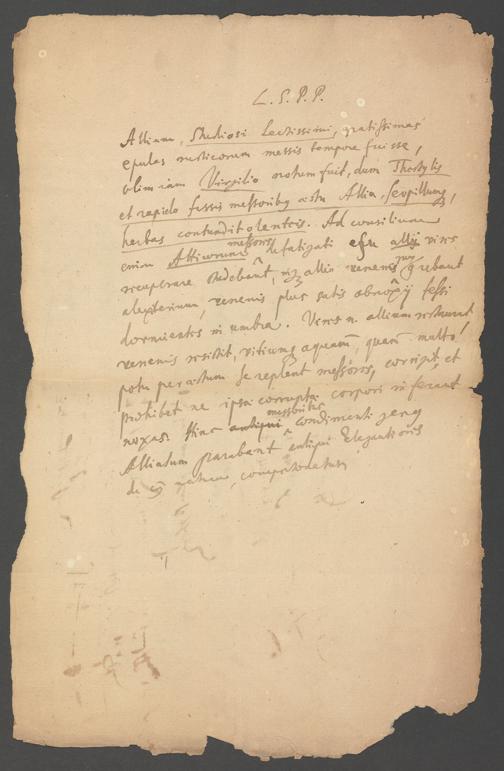 L. S. P. P.
Allium, Studiosi Lectissimi, gratissimas
epulas rusticorum messis tempore fuisse,
olim iam Virgilio notum fuit, dum Thestylis
et rapido fessis messoribq æstu Allia, serpillumq,
herbas contundit olenteis. Ad consilium
enim Atticorum messores defatigati esu allii vires
recuperare studebant, in allio venenis
alexiterium, venenis plus satis obnoxij fessi
dormientes in umbra. Vires n. allium restaurat
venenis resistit, vitiumq aquam, quam multo
potu per æstum se replent messores, corrigit, et
prohibet ne ipsa corrupta corpori inferant
noxas. Hinc antiqui messoribus condimenti genq
Alliatum parabant antiqui Elegantioris
de cj natura, competodatur